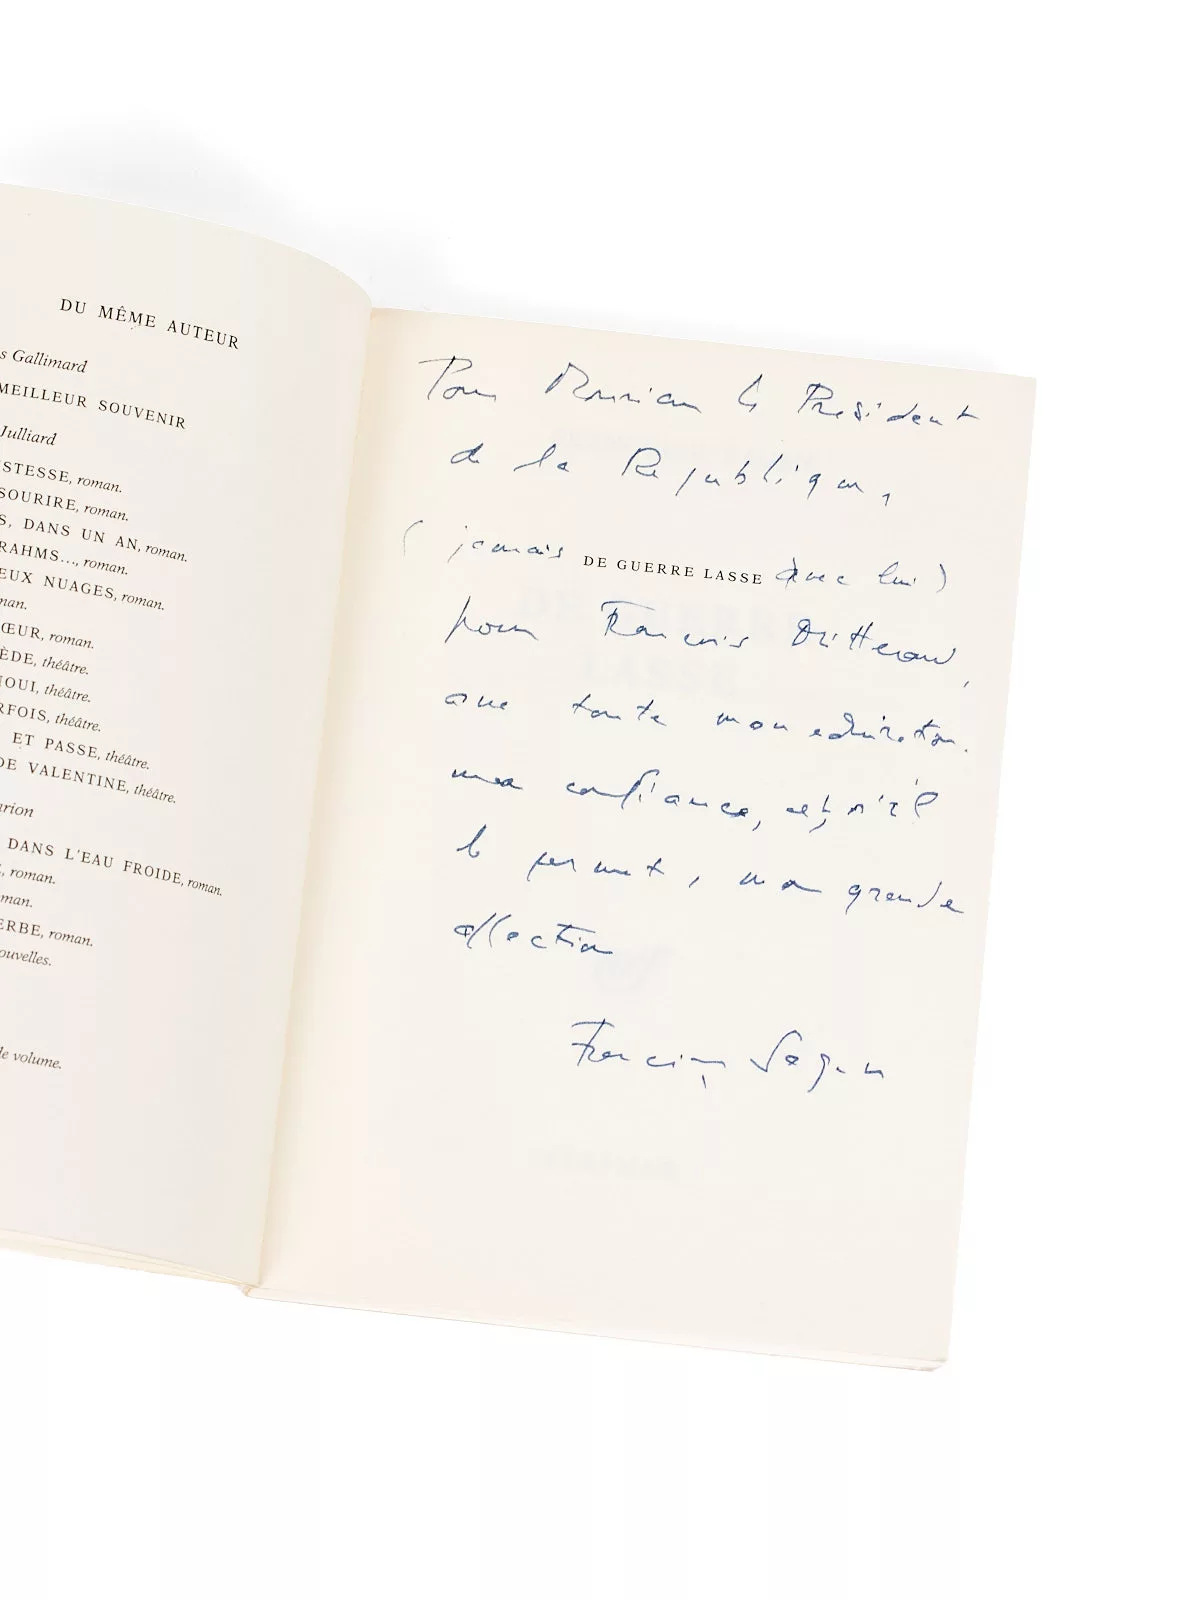 DU MÊME AUTEUR
s Gallimard
MEILLEUR SOUVENIR
Julliard
STESSE, roman.
SOURIRE, roman.
S, DANS UN AN, roman.
RAHMS..., roman.
EUX NUAGES, roman.
man.
ŒUR, roman.
ÈDE, théâtre.
NOUI, théâtre.
RFOIS, théâtre.
ET PASSE, théâtre.
DE VALENTINE, théâtre.
arion
DANS L'EAU FROIDE, roman.
, roman.
man.
ERBE, roman.
ouvelles.
le volume.
Pour Monsieur le Président
de la République,
(jamais DE GUERRE LASSE avec lui)
pour François Mitterand,
avec toute mon admiration.
ma confiance, et, s'il
le permet, ma grande
affection
Françoise Sagan